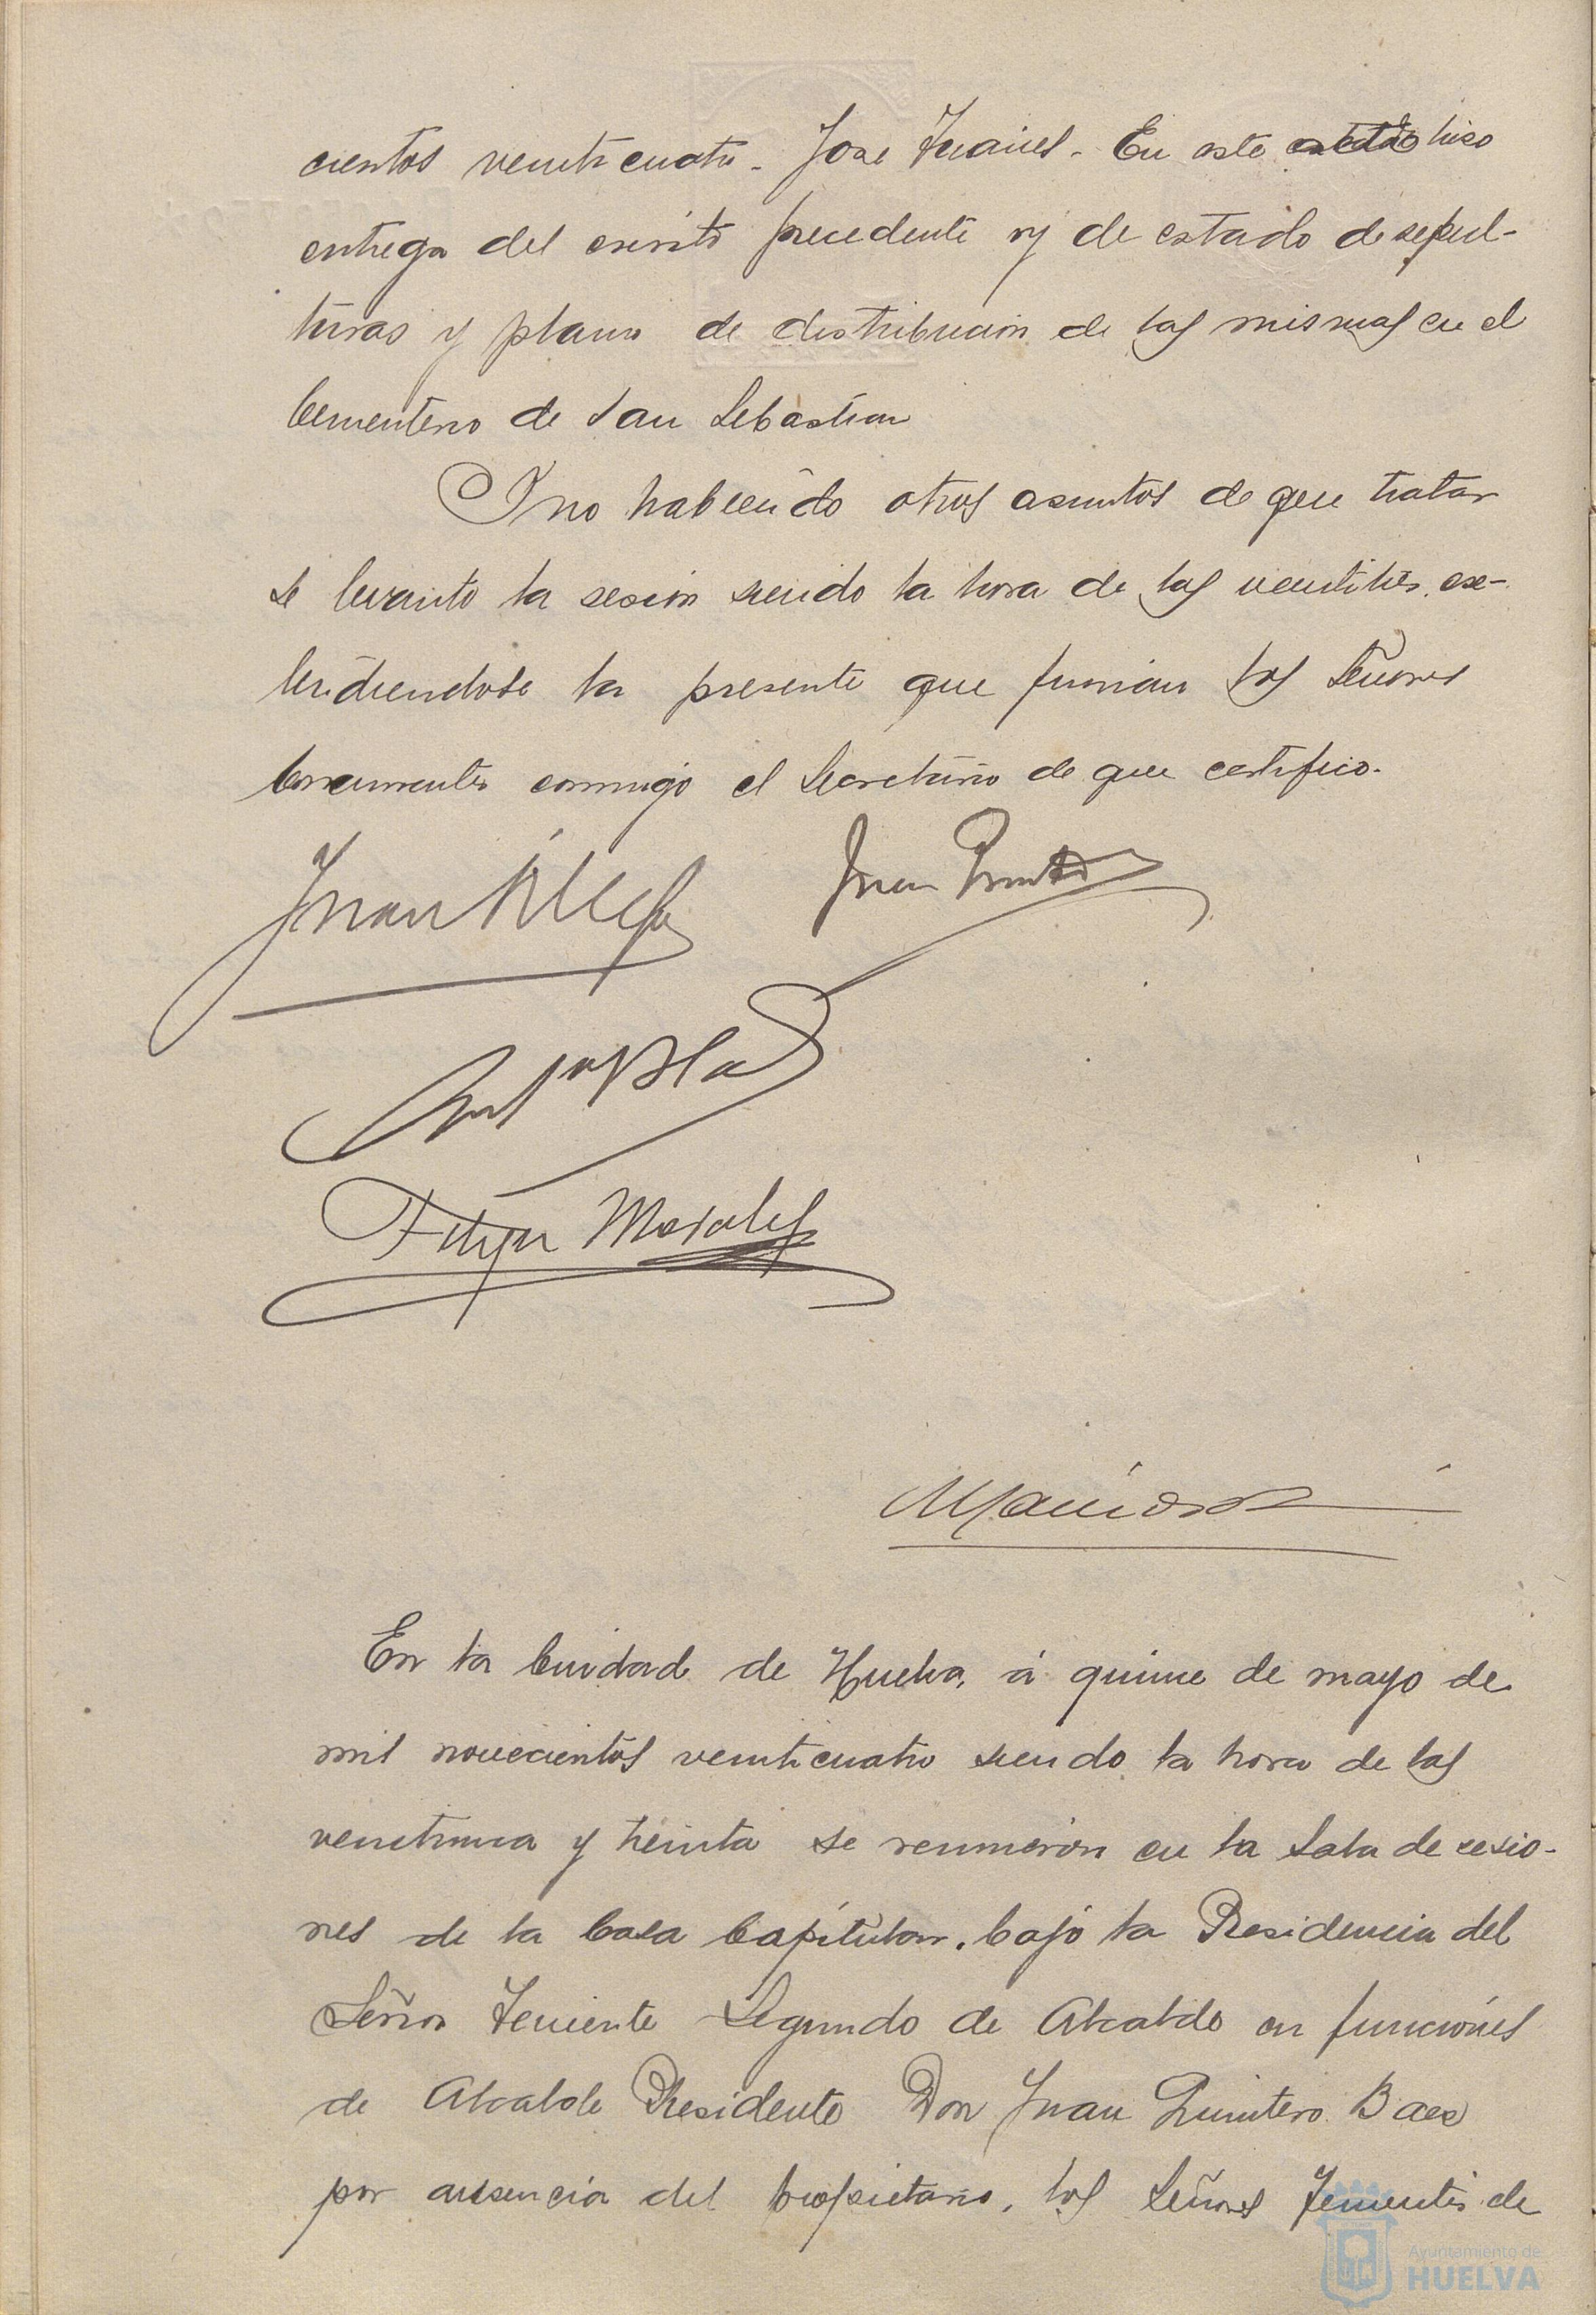 cientos veinticuatro. Jose Juanes. En este estado hizo
entrega del escrito precedente y de estado de sepul-
turas y plano de distribucion de las mismas en el
Cementerio de San Sebastian
Y no habiendo otros asuntos de que tratar
se levanto la sesion siendo la hora de las veintitres, ex-
tendiendose la presente que firman los Señores
Concurrentes conmigo el Secretario de que certifico.
Juan Juan Quintero
Antº Blas
Felipe Morales
En la Ciudad de Huelva, á quince de mayo de
mil novecientos veinticuatro siendo la hora de las
veintiuna y treinta se reunieron en la Sala de sesio-
nes de la Casa Capitular, bajo la Presidencia del
Señor Teniente Segundo de Alcalde en funciones
de Alcalde Presidente Don Juan Quintero Baez
por ausencia del propietario, los Señores Tenientes de
Ayuntamiento de
HUELVA